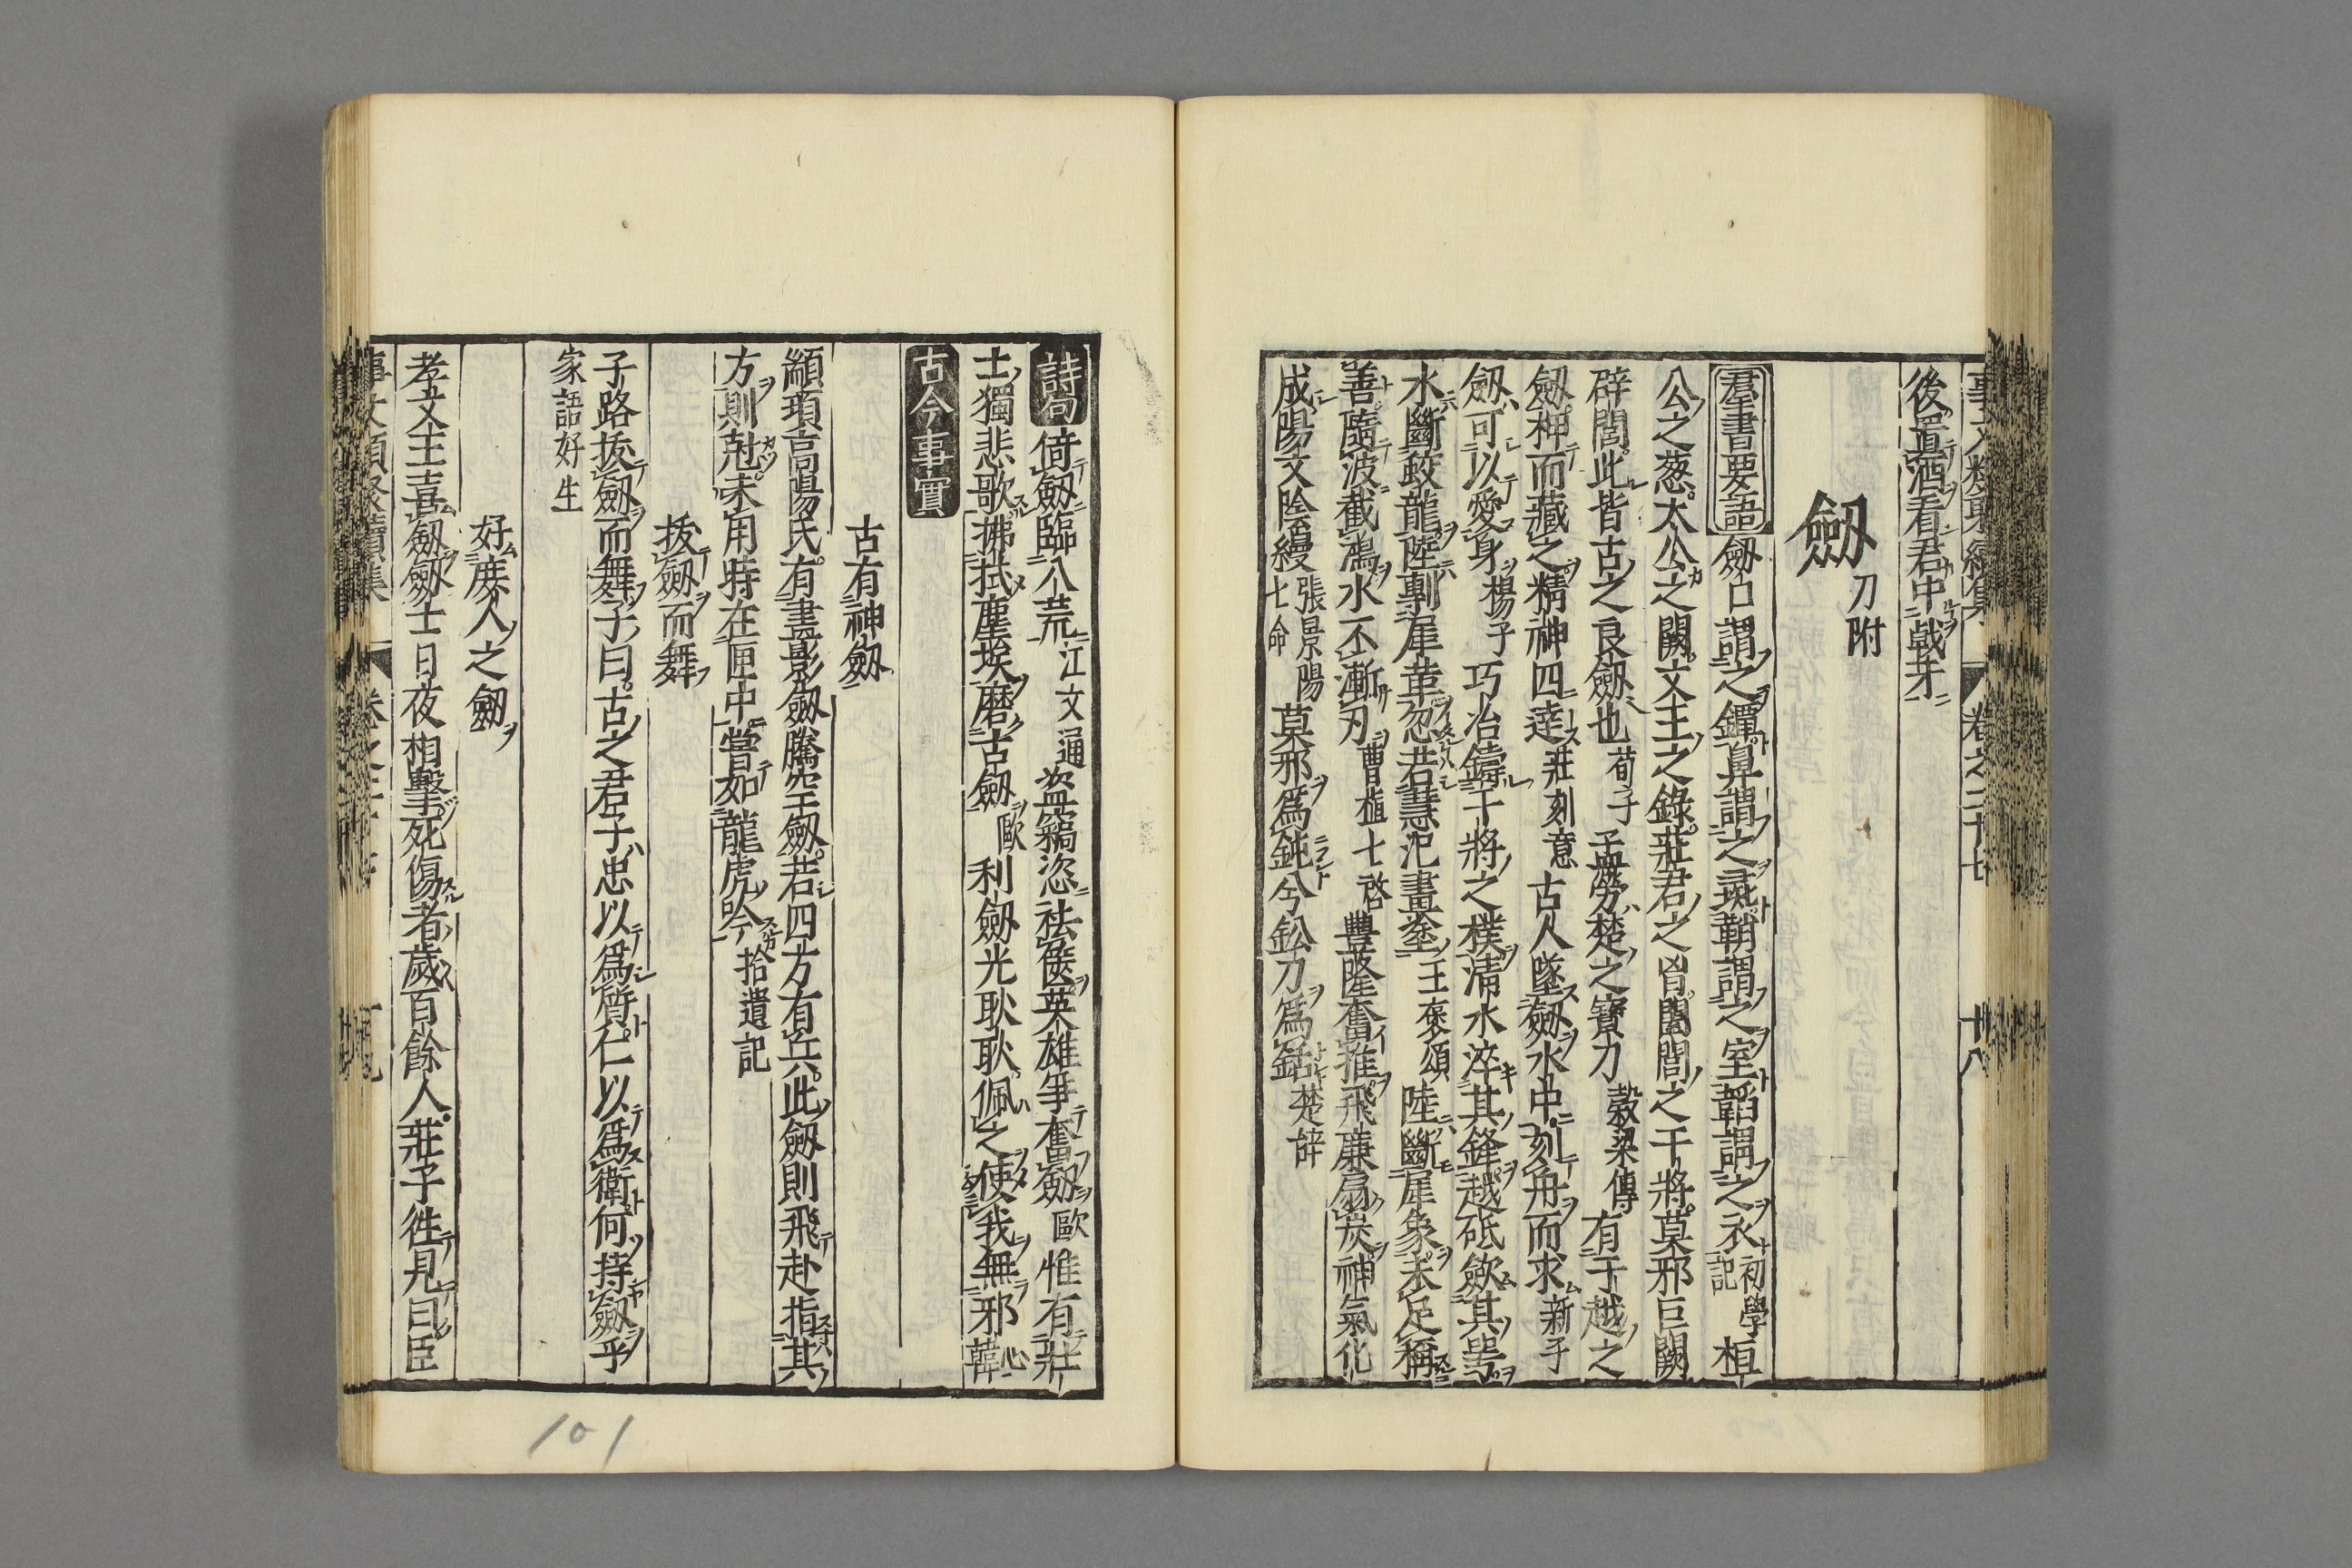 後置酒看君中戟牙
劔 刀附
羣書要語 劔口謂之鐔鼻謂之璏鞘謂之室韜謂之衣 初學記 桓
公之葱太公之闕文王之錄莊君之曶闔閭之干將莫邪巨闕
辟閭此皆古之良劔也 荀子 孟勞楚之寶刀 榖梁傳 有于越之
劔神而藏之精神四達 莊刻意 古人墜劔水中刻舟而求 新子
劔可以愛身 楊子 巧冶鑄干將之樸清水淬其鋒越砥歛其咢
水斷蛟龍陸剸犀革忽若彗氾畫塗 王褒頌 陸斷犀象未足稱
善隨波截鴻水不漸刃 曹植七啓 豐隆奮推飛廉扇炭神氣化
成陽文陰縵 張景陽七命 莫邪爲鈍兮鈆刀爲銛 楚辞
詩句 倚劔臨八荒 江文通 盗竊恣祛篋英雄爭奮劔 歐 惟有莊
士獨悲歌拂拭塵埃磨古劔 歐 利劔光耿耿佩之使我無邪心 韓
古今事實
古有神劔
顓頊高陽氏有畫影劔騰空劔若四方有兵此劔則飛赴指其
方則尅未用時在匣中嘗如龍虎吟 拾遺記
拔劔而舞
子路拔劔而舞子曰古之君子忠以爲質仁以爲衛何持劔乎
家語好生
好庻人之劔
孝文王喜劔劔士日夜相擊死傷者歲百餘人莊子徃見曰臣
101